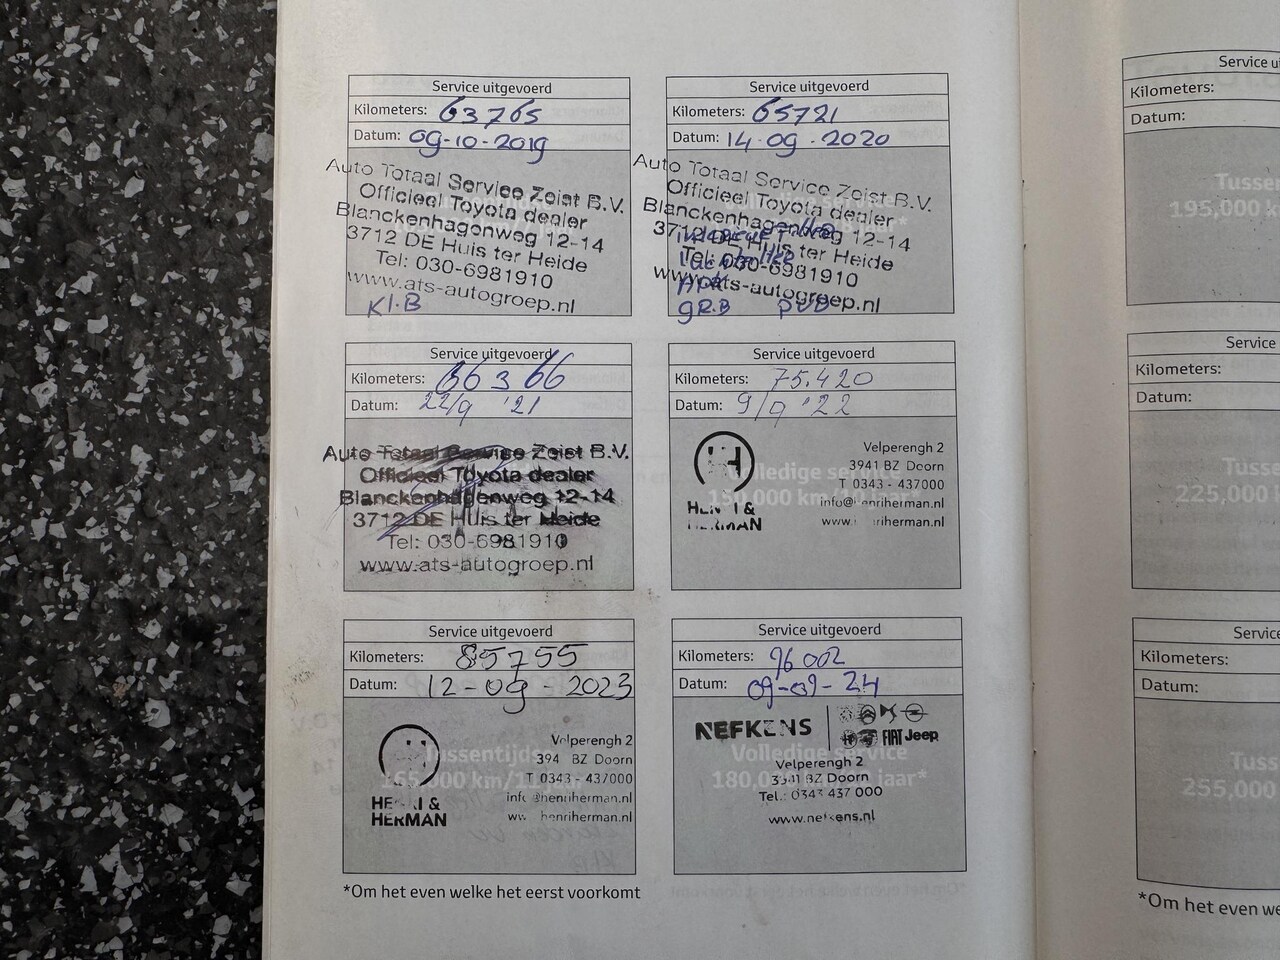 Service uitgevoerd
Kilometers: 63765
Datum: 09-10-2019
Auto Totaal Service Zeist B.V.
Officieel Toyota dealer
Blanckenhagenweg 12-14
3712 DE Huis ter Heide
Tel: 030-6981910
www.ats-autogroep.nl
Kl.B
Service uitgevoerd
Kilometers: 65721
Datum: 14-09-2020
Auto Totaal Service Zeist B.V.
Officieel Toyota dealer
Blanckenhagenweg 12-14
3712 DE Huis ter Heide
Tel: 030-6981910
www.ats-autogroep.nl
APK
gR.B
Service uitgevoerd
Kilometers: 66366
Datum: 22/9 '21
Auto Totaal Service Zeist B.V.
Officieel Toyota dealer
Blanckenhagenweg 12-14
3712 DE Huis ter Heide
Tel: 030-6981910
www.ats-autogroep.nl
Service uitgevoerd
Kilometers: 75.420
Datum: 9/9 '22
Volledige service
150,000 km
jaar*
HENRI &
HERMAN
Velperengh 2
3941 BZ Doorn
T 0343 - 437000
info@henriherman.nl
www.henriherman.nl
Service uitgevoerd
Kilometers: 85755
Datum: 12-09-2023
Tussentijdse
165,000 km/11 jaar*
HENRI &
HERMAN
Velperengh 2
3941 BZ Doorn
T 0343 - 437000
info@henriherman.nl
www.henriherman.nl
Service uitgevoerd
Kilometers: 96002
Datum: 09-09-24
NEFKENS
FIAT Jeep
Volledige service
180,000 km
jaar*
Velperengh 2
3941 BZ Doorn
Tel.: 0343 437 000
www.nefkens.nl
*Om het even welke het eerst voorkomt
Service u
Kilometers:
Datum:
Tussen
195,000 k
Service
Kilometers:
Datum:
Tusse
225,000
Servic
Kilometers:
Datum:
Tuss
255,000
*Om het even we